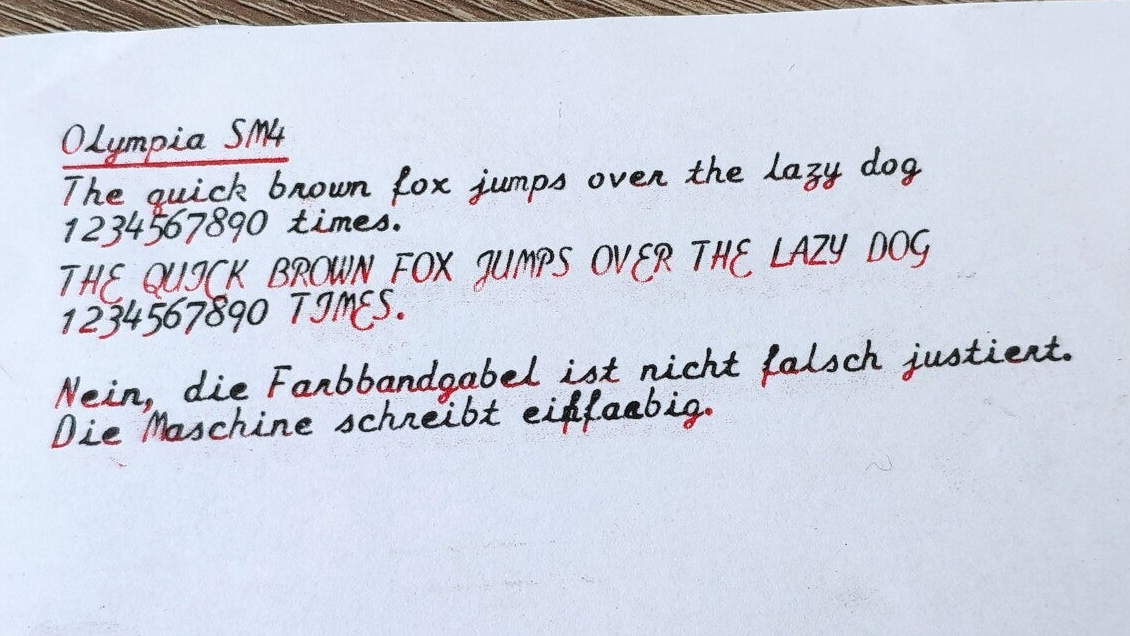 Olympia SM4
The quick brown fox jumps over the lazy dog
1234567890 times.
THE QUICK BROWN FOX JUMPS OVER THE LAZY DOG
1234567890 TIMES.
Nein, die Farbbandgabel ist nicht falsch justiert.
Die Maschine schreibt einfarbig.